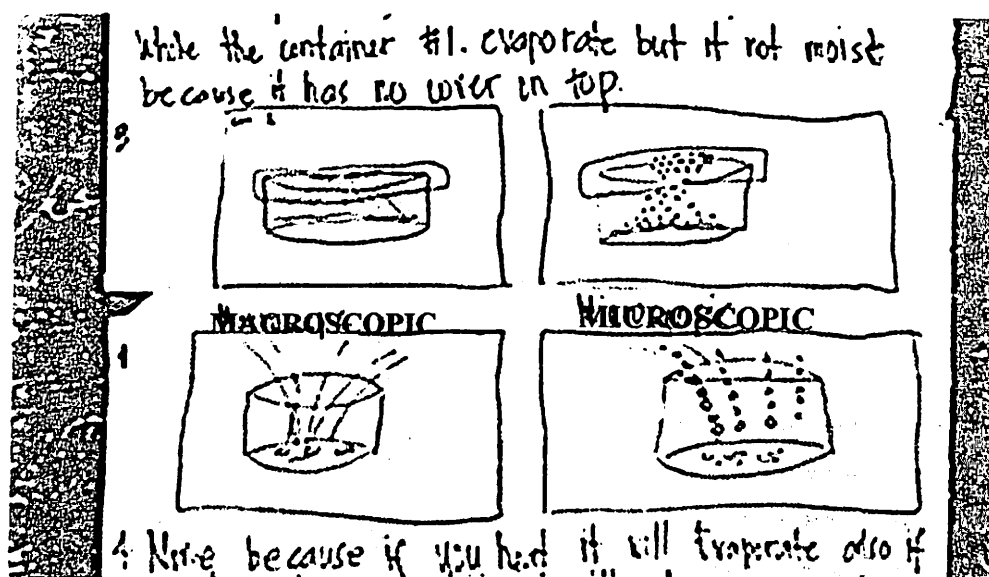 While the container #1. evaporate but it not moist
because it has no cover in top.
2
MACROSCOPIC MICROSCOPIC
1
4 None because if you heat it will Evaporate also if